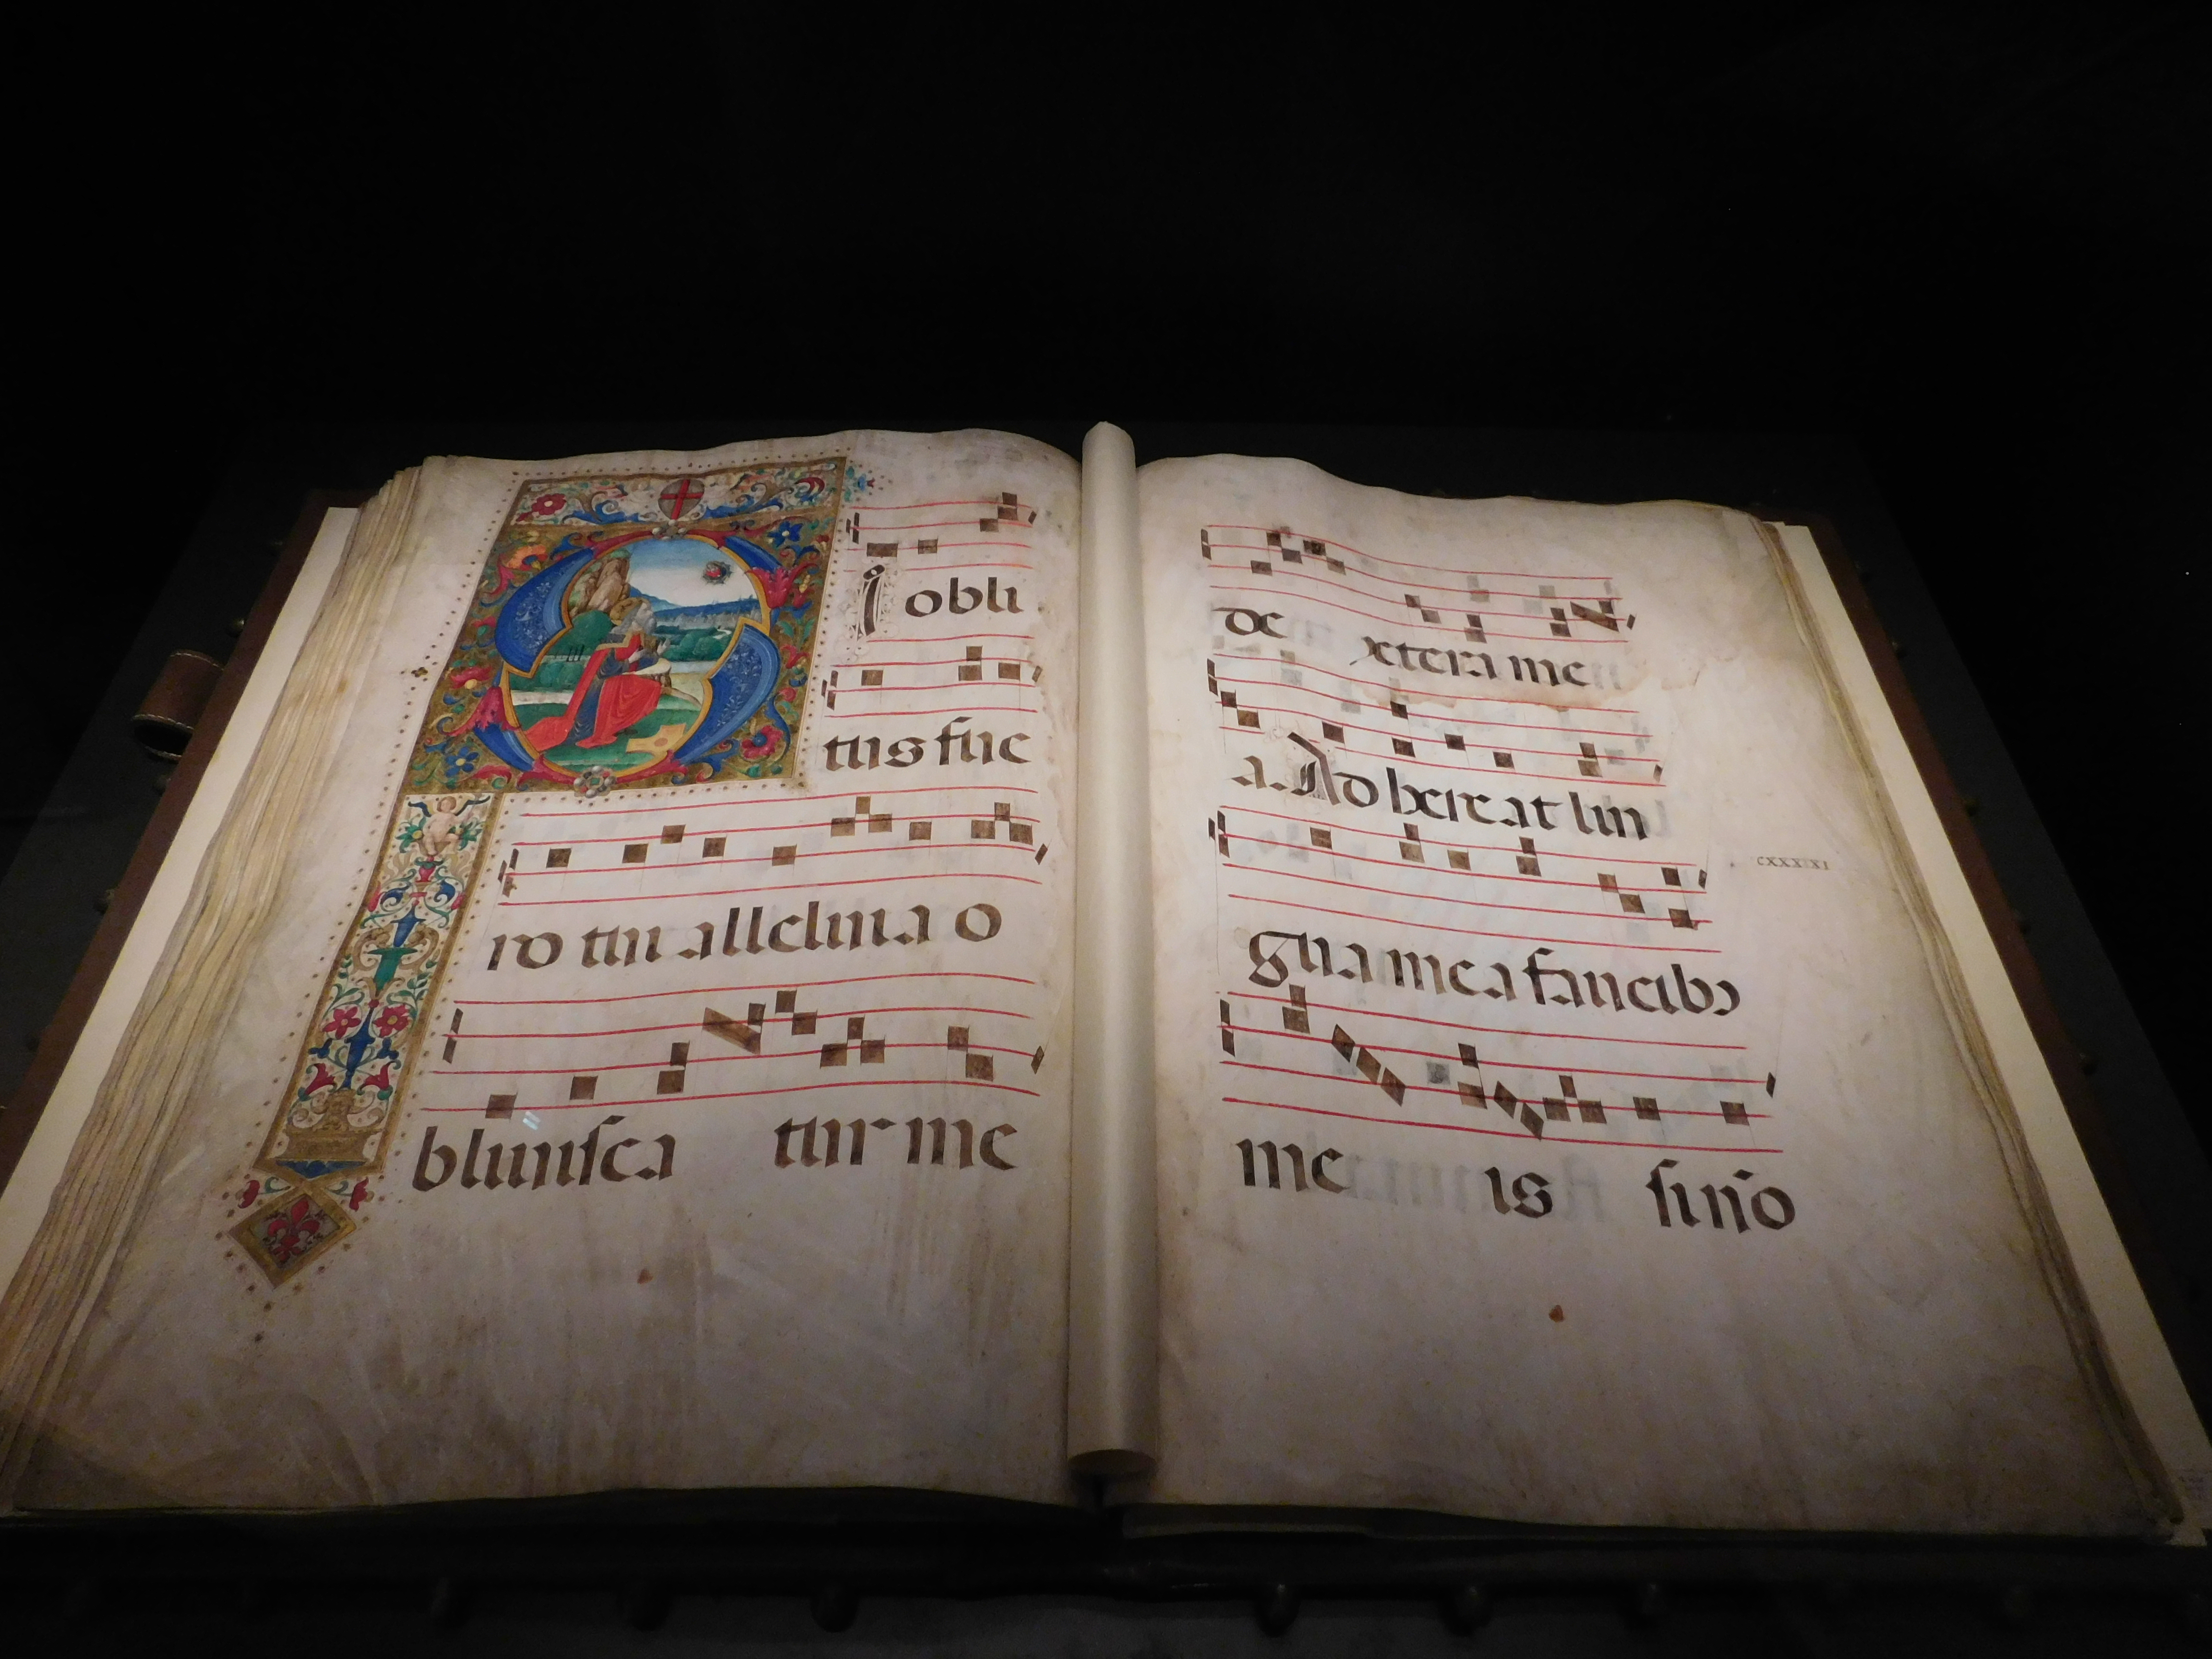 i obli
tus fue
ro tui alleluia o
bluiısca tur me
de xtera me
a. Ad hereat lin
gua mea faucibꝰ
me is si nō
CXXXXI